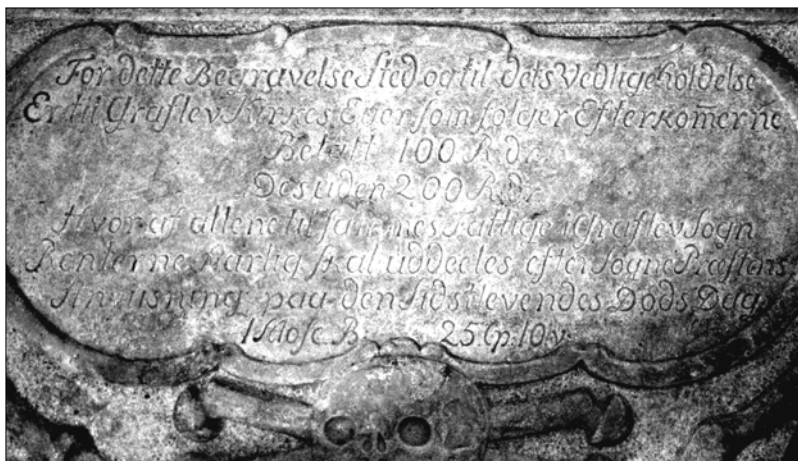 For dette BegravelseSted og til dets Vedligeholdelse
Er til Graflev Kirkes Ejer som følger Efterkom̄erne
Betalt 100 Rdr
Desuden 200 Rdr
Hvoraf allene til sam̄es Fattige i Graflev Sogn
Renterne Aarlig skal uddeeles efter Sogne Præstens
Anviisning paa den Sidst levendes Døds Dag
1 Mose B: 25 Cp: 10 v: